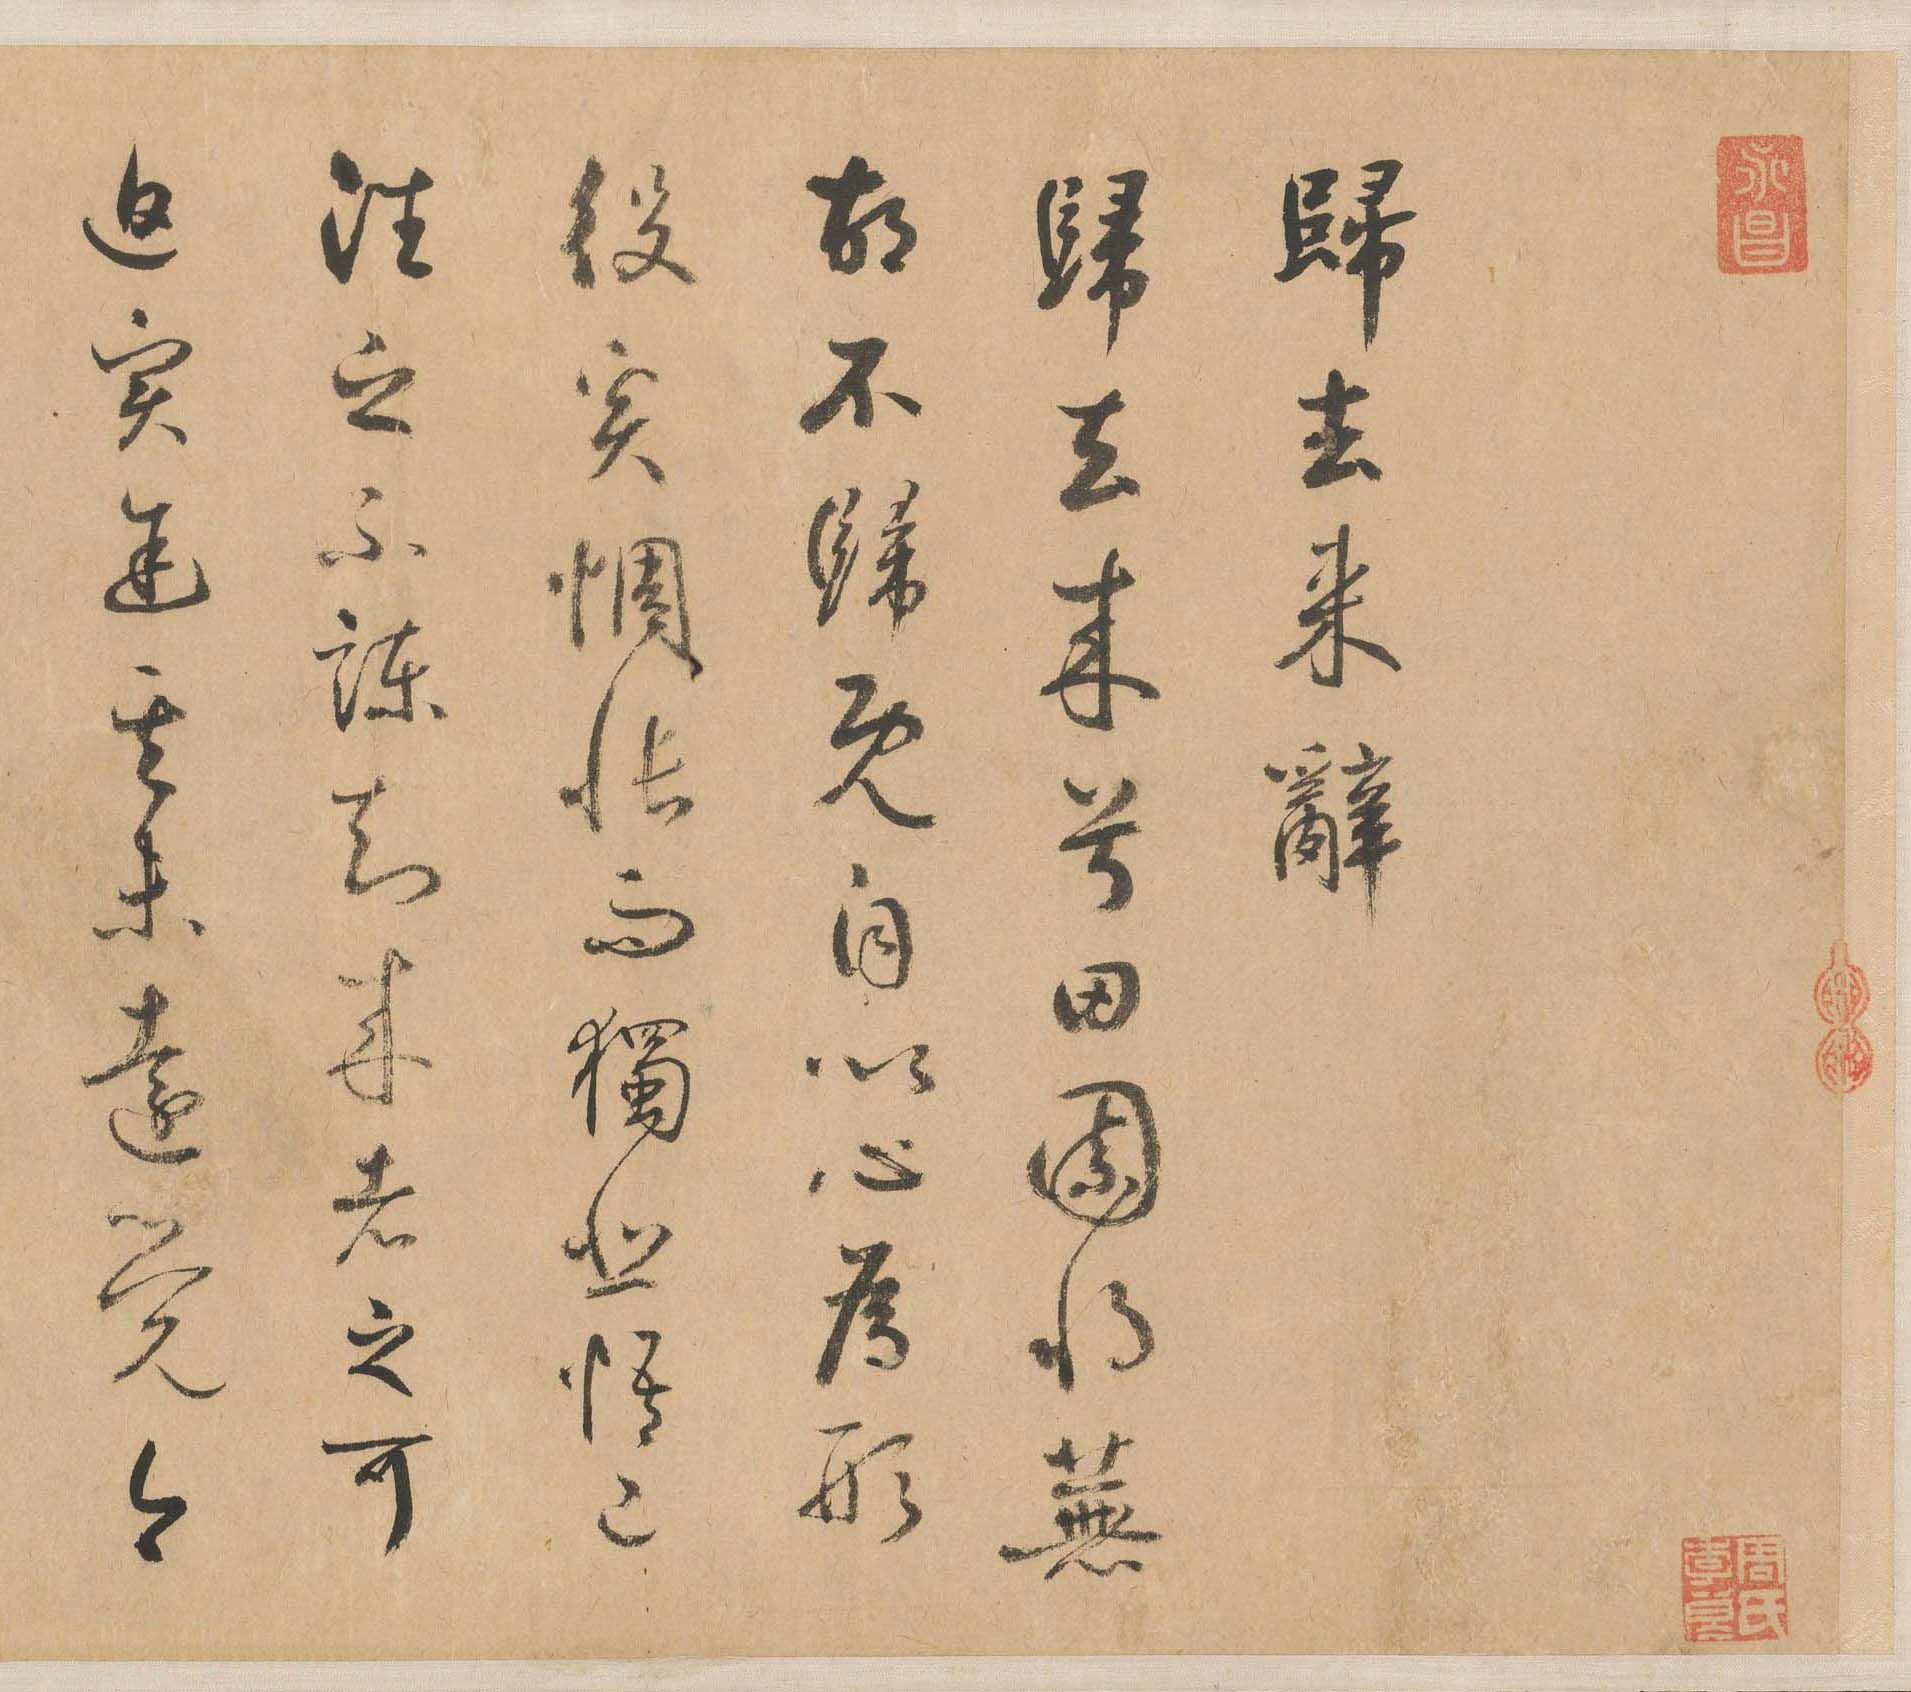 永昌
歸去来辭
歸去来兮田園将蕪
胡不歸既自以心為形
役奚惆悵而獨悲悟已
往之不諫知来者之可
追实途其未遠覺今
周氏